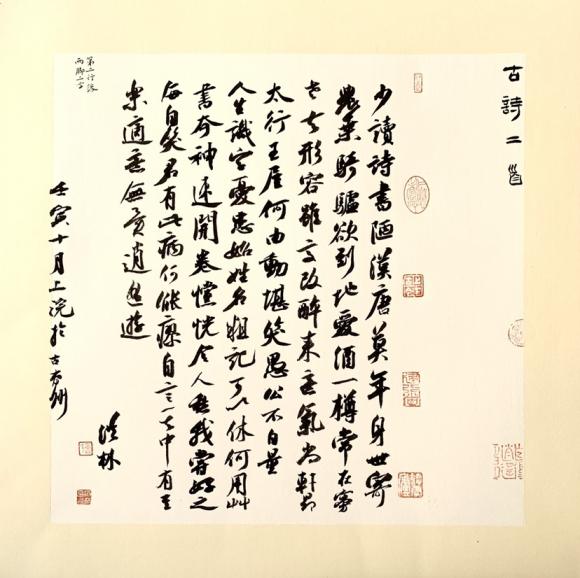 古詩二首
少讀詩書陋漢唐莫年身世寄
農桑騎驢欲到地愛酒一樽常在旁
老去形容雖變改醉來意氣尚軒昂
太行王屋何由動堪笑愚公不自量
人生識字憂患始姓名粗記可以休何用草
書夸神速開卷惝怳令人愁我嘗好之
每自笑君有此病何能瘳自言其中有至
樂適意無異逍遙遊
第二行落
兩脚二字
壬寅十月上浣於古
林